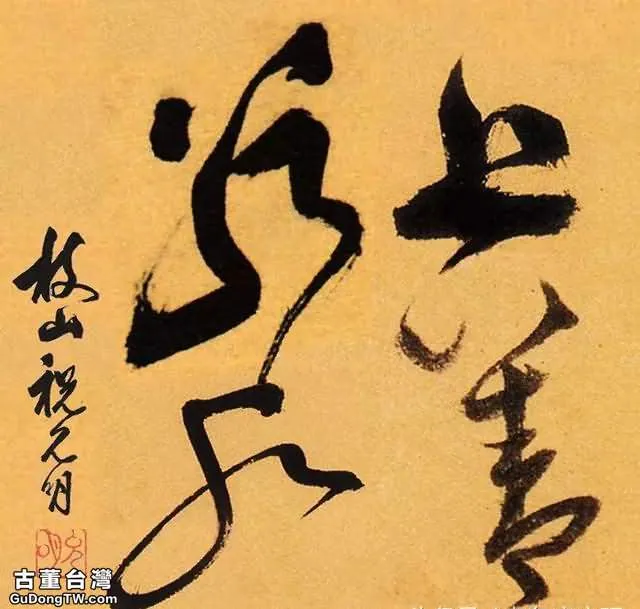 上善
若水
枝山祝允明
古董台灣
GuDongTW.com